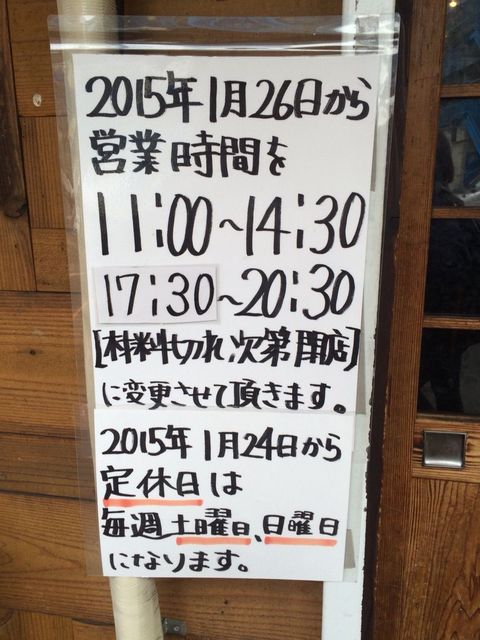 2015年1月26日から
営業時間を
11:00～14:30
17:30～20:30
[材料切れ次第閉店]
に変更させて頂きます。
2015年1月24日から
定休日は
毎週土曜日、日曜日
になります。